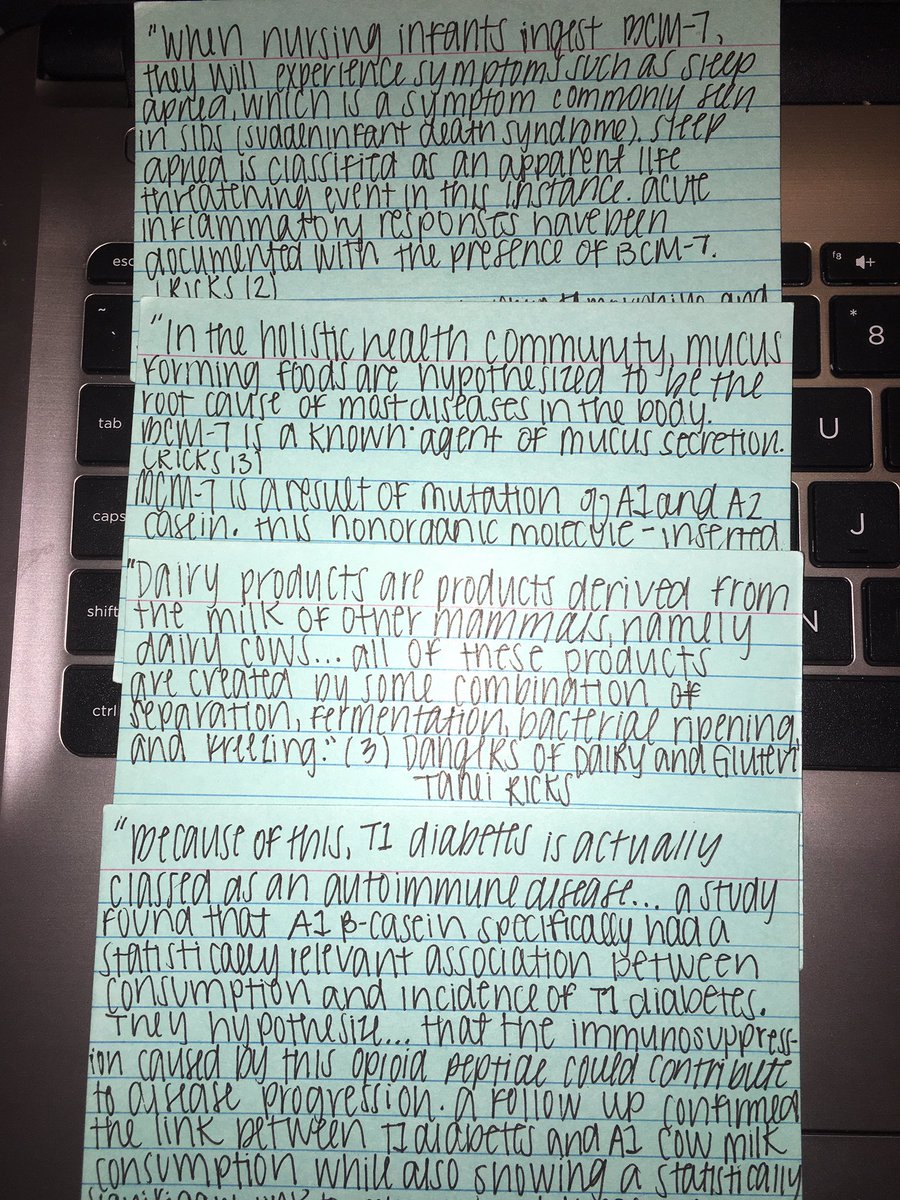 "When nursing infants ingest BCM-7,
they will experience symptoms such as sleep
apnea, which is a symptom commonly seen
in SIDS (sudden infant death syndrome). Sleep
apnea is classified as an apparent life
threatening event in this instance. acute
inflammatory responses have been
documented with the presence of BCM-7.
(RICKS 12)
and
"In the holistic health community, mucus
forming foods are hypothesized to be the
root cause of most diseases in the body.
BCM-7 is a known agent of mucus secretion.
(RICKS 13)
BCM-7 is a result of mutation of A1 and A2
casein. this nonorganic molecule - inserted
"Dairy products are products derived from
the milk of other mammals, namely
dairy cows... all of these products
are created by some combination of
separation, fermentation, bacterial ripening,
and freezing." (3) Dangers of Dairy and Gluten
RICKS
"Because of this, T1 diabetes is actually
classed as an autoimmune disease... a study
found that A1 β-casein specifically had a
statistically relevant association between
consumption and incidence of T1 diabetes.
They hypothesize... that the immunosuppress-
ion caused by this opioid peptide could contribute
to disease progression. a follow up confirmed
the link between T1 diabetes and A1 cow milk
consumption while also showing a statistically
esc
f8
~
`
*
8
tab
U
caps
J
shift
N
ctrl